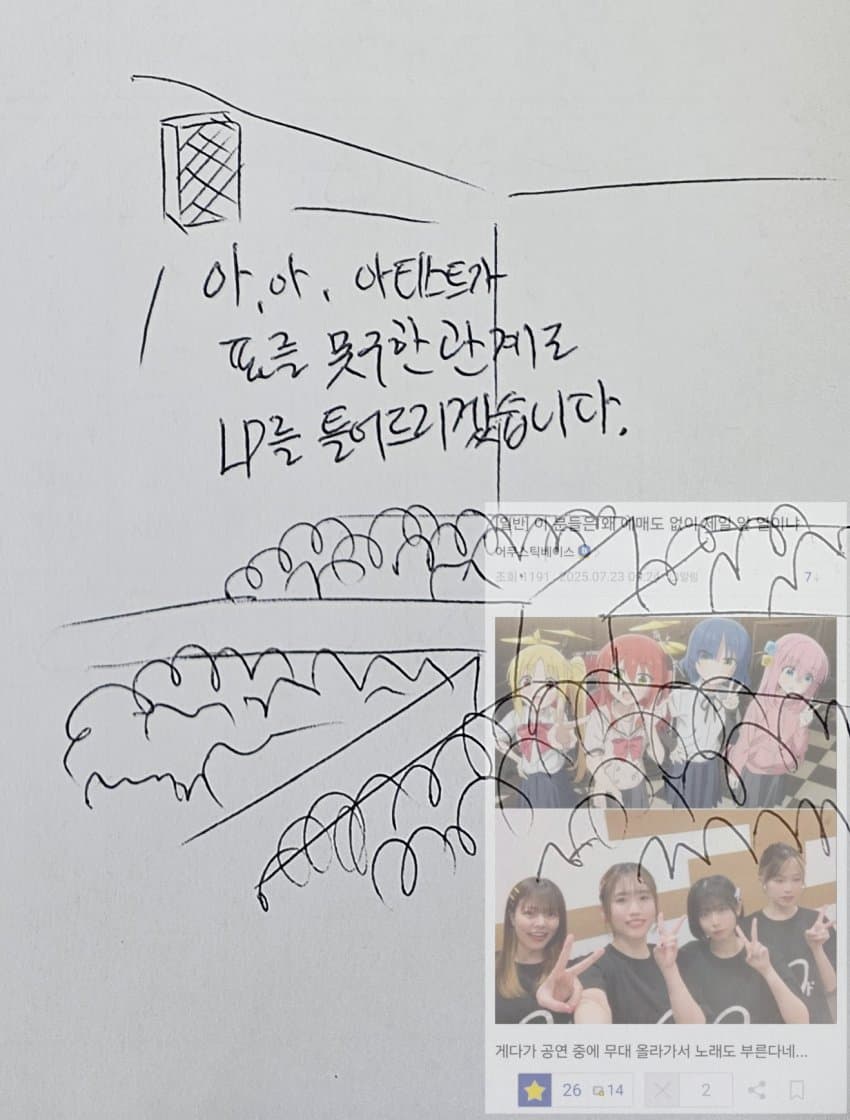 아, 아, 아티스트가
표를 못구한 관계로
LP를 틀어드리겠습니다.
[일반] 이 분들은 왜 예매도 없이 제일 앞 열이냐
어쿠스틱베이스
조회 1191 2025.07.23 알림
7
게다가 공연 중에 무대 올라가서 노래도 부른다네...
26 14 2